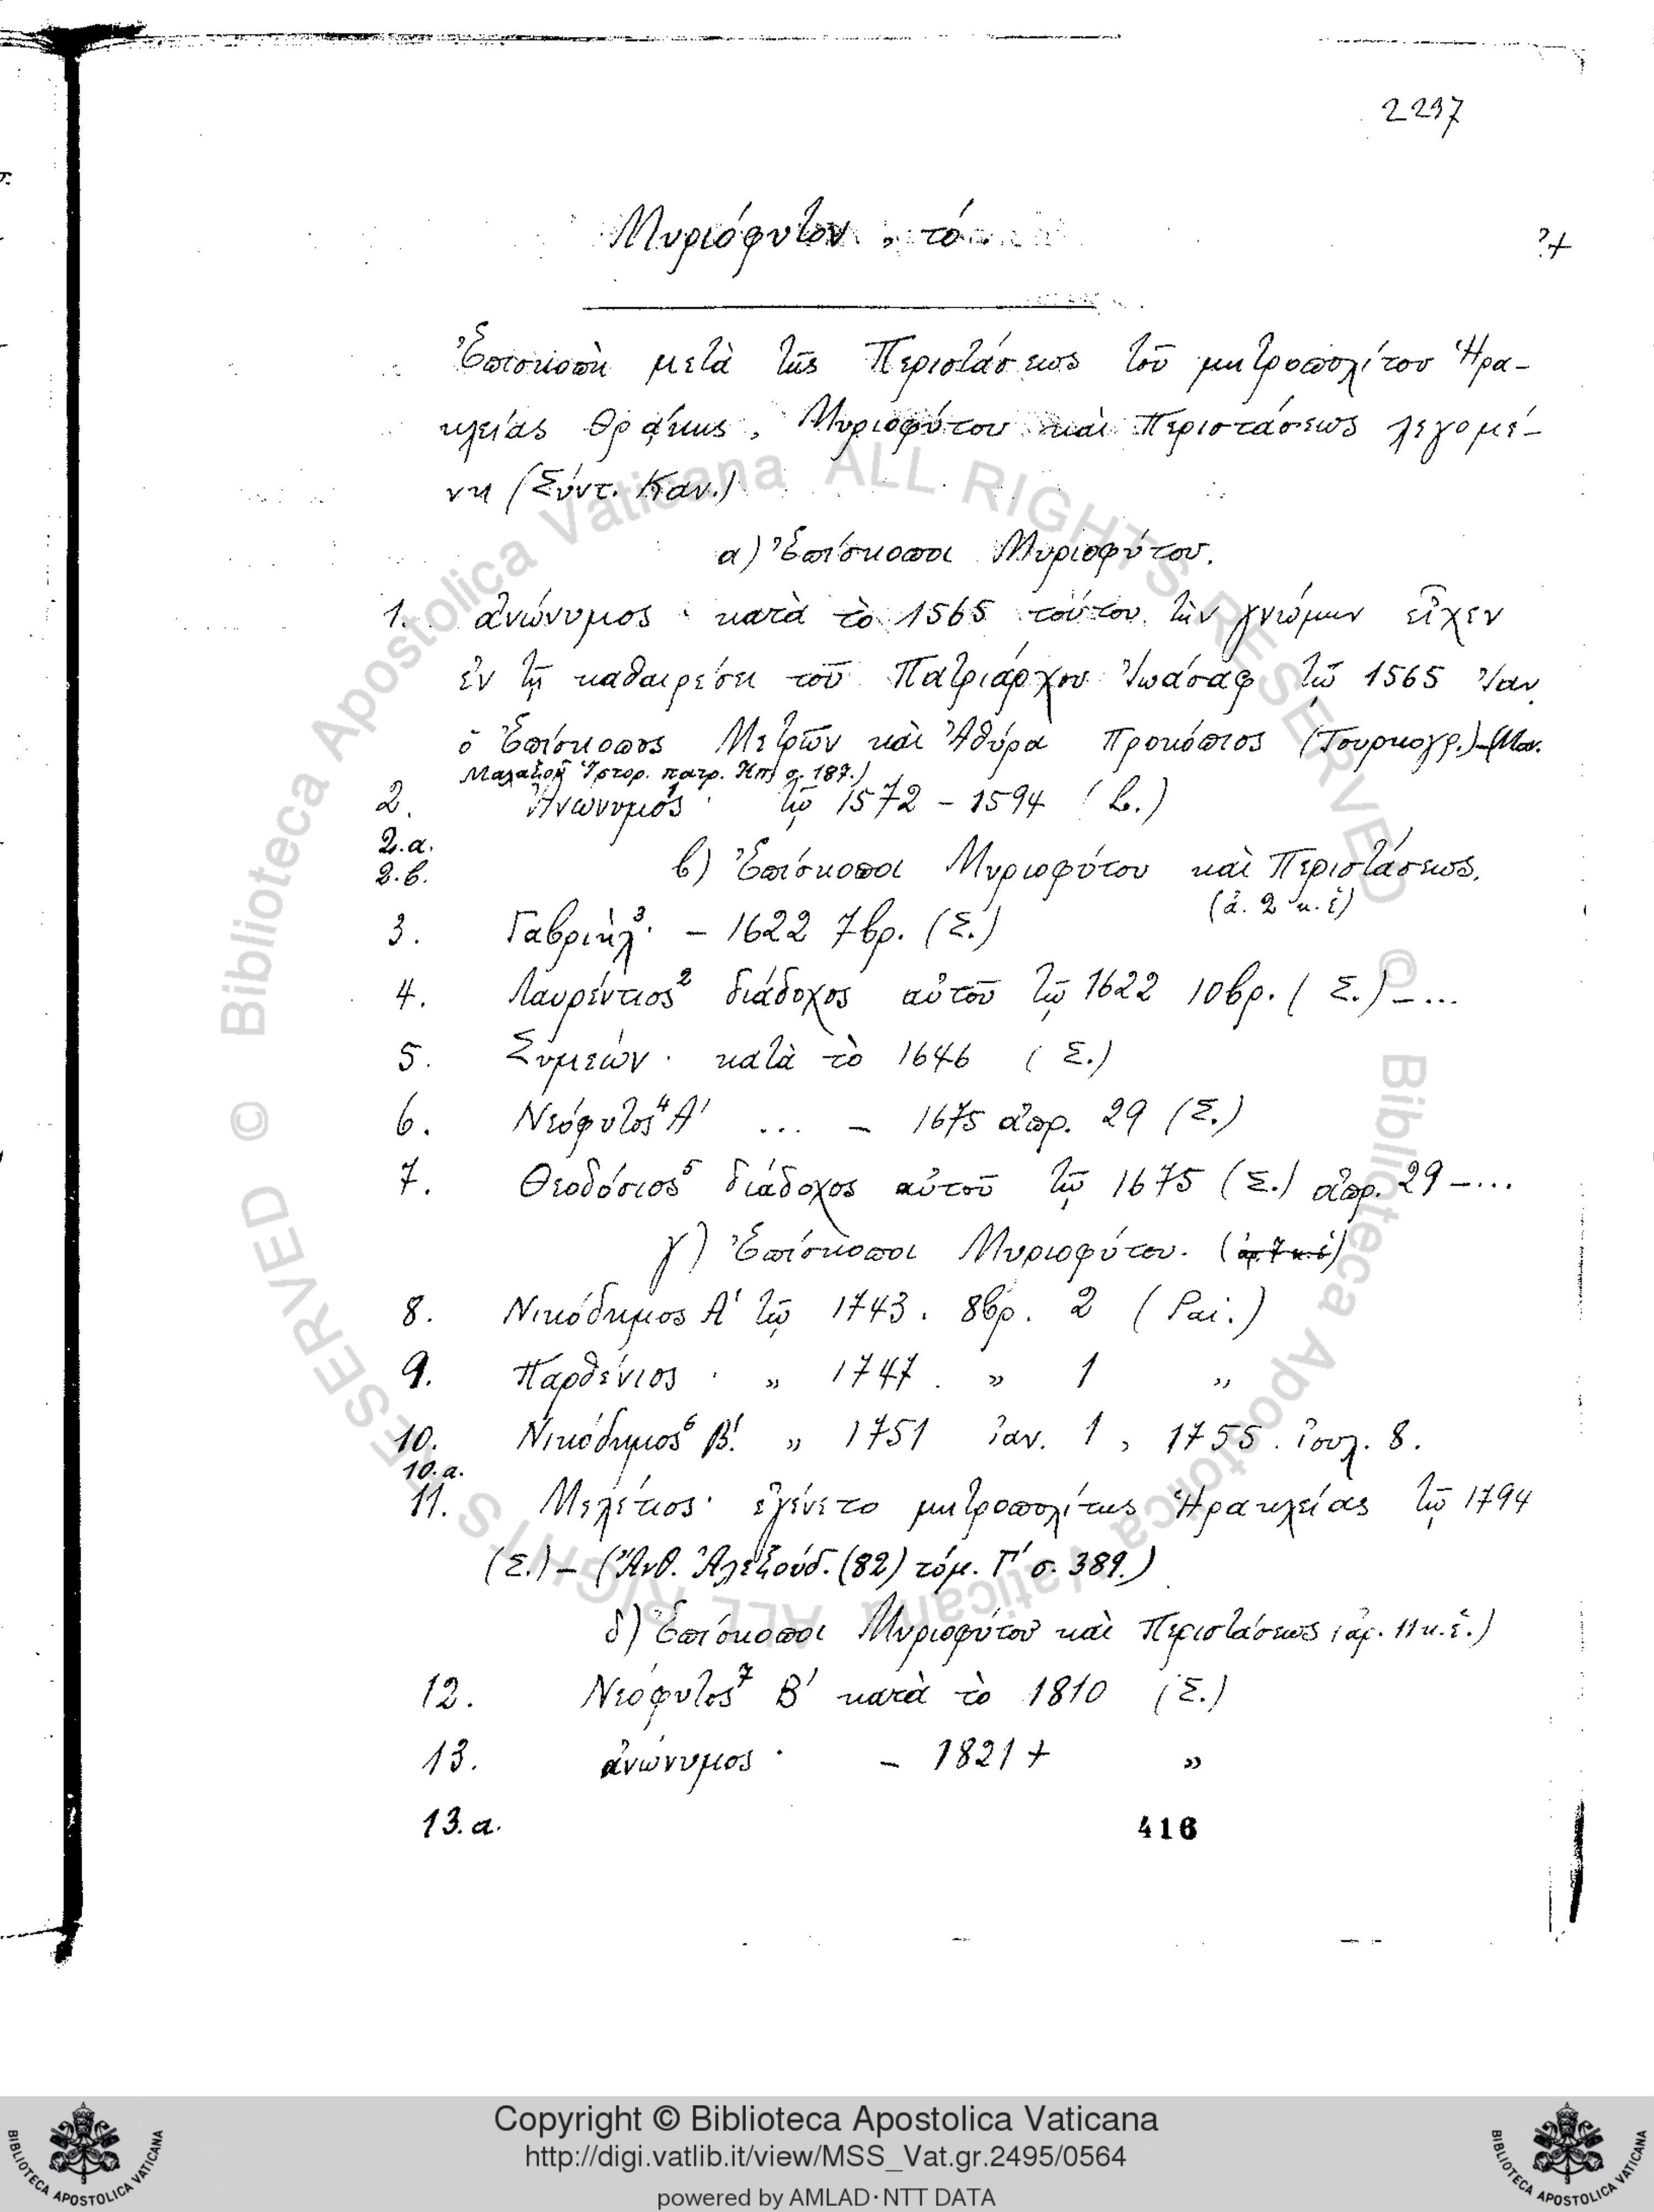 2237
Μυριόφυτον, τό.
?+
Ἐπισκοπὴ μετὰ τῆς Περιστάσεως τοῦ μητροπολίτου Ἡρα-
κλείας Θράκης, Μυριοφύτου καὶ Περιστάσεως λεγομέ-
νη (Σύντ. Καν.)
α) Ἐπίσκοποι Μυριοφύτου.
1. ἀνώνυμος· κατὰ τὸ 1565 τούτου τὴν γνώμην εἶχεν
ἐν τῇ καθαιρέσει τοῦ Πατριάρχου Ἰωάσαφ τῷ 1565 Ἰαν.
ὁ Ἐπίσκοπος Μετρῶν καὶ Ἀθύρα Προκόπιος (Τουρκογρ.)-(Μαν.
Μαλαξοῦ Ἱστορ. πατρ. Κπ σ. 187.)
2. Ἀνώνυμος¹· τῷ 1572 - 1594 (L.)
2.α.
2.β. β) Ἐπίσκοποι Μυριοφύτου καὶ Περιστάσεως.
(ἀ. 2 κ. ἑ)
3. Γαβριὴλ³· - 1622 7βρ. (Σ.)
4. Λαυρέντιος² διάδοχος αὐτοῦ τῷ 1622 10βρ. (Σ.) - ...
5. Συμεών· κατὰ τὸ 1646 (Σ.)
6. Νεόφυτος⁴ Α' ... - 1675 ἀπρ. 29 (Σ.)
7. Θεοδόσιος⁵ διάδοχος αὐτοῦ τῷ 1675 (Σ.) ἀπρ. 29 - ...
γ) Ἐπίσκοποι Μυριοφύτου. (ἀρ. 7 κ. ἑ)
8. Νικόδημος Α' τῷ 1743. 8βρ. 2 (Ραι.)
9. Παρθένιος· „ 1747. „ 1 „
10. Νικόδημος⁶ Β'. „ 1751 ἰαν. 1, 1755. ἰουλ. 8.
10.α.
11. Μελέτιος· ἐγένετο μητροπολίτης Ἡρακλείας τῷ 1794
(Σ.) - (Ἀνθ. Ἀλεξούδ. (82) τόμ. Γ' σ. 389.)
δ) Ἐπίσκοποι Μυριοφύτου καὶ Περιστάσεως (ἀρ. 11 κ. ἑ.)
12. Νεόφυτος⁷ Β' κατὰ τὸ 1810 (Σ.)
13. ἀνώνυμος· - 1821 + „
13.α.
416
© Biblioteca Apostolica Vaticana ALL RIGHTS RESERVED
© Biblioteca Apostolica Vaticana ALL RIGHTS RESERVED
Copyright © Biblioteca Apostolica Vaticana
http://digi.vatlib.it/view/MSS_Vat.gr.2495/0564
powered by AMLAD·NTT DATA
BIBLIOTECA APOSTOLICA VATICANA
BIBLIOTECA APOSTOLICA VATICANA